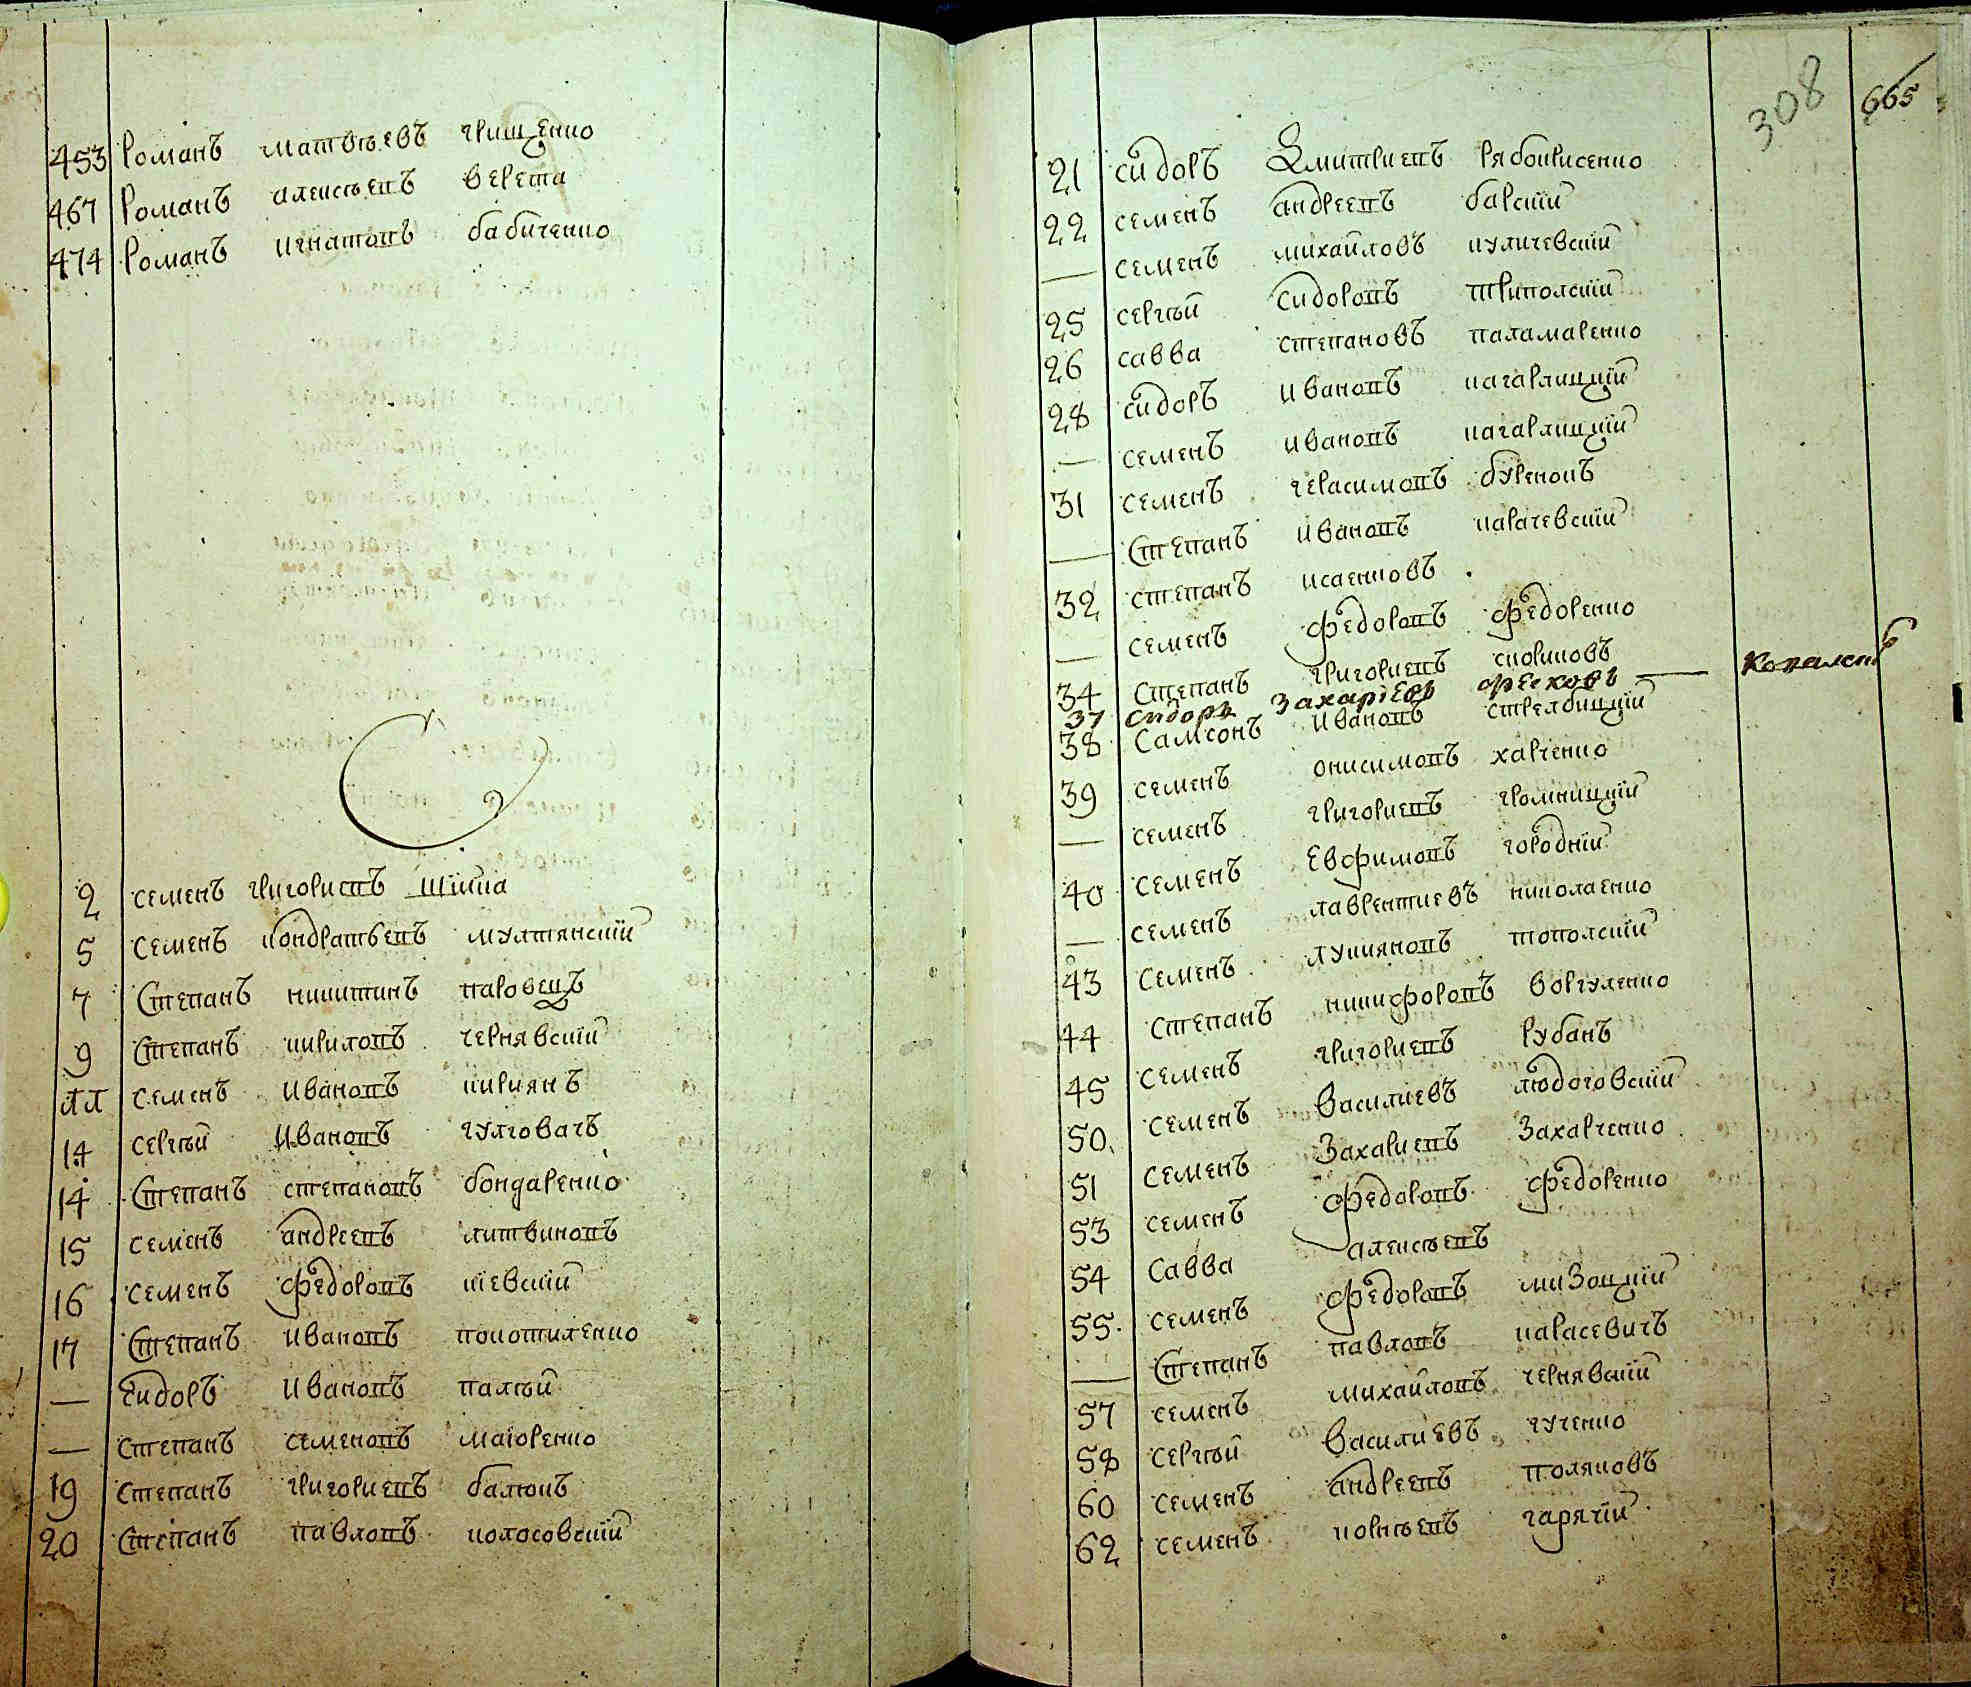 453 Романъ матвѣевъ грищенко
467 Романъ алексѣевъ верета
474 Романъ игнатовъ бабиченко
С
2 семенъ григориевъ шійка
5 семенъ кондратьевъ мултянскій
7 Степанъ никитинъ паровецъ
9 Степанъ кириловъ чернявскій
11 семенъ Ивановъ кириянъ
14 сергѣй Ивановъ гулговачъ
14 Степанъ степановъ бондаренко
15 семенъ андреевъ литвиновъ
16 семенъ федоровъ кіевскій
17 Степанъ Ивановъ покотиленко
— Сидоръ Ивановъ палѣй
— степанъ семеновъ маіоренко
19 степанъ григориевъ балюкъ
20 Степанъ павловъ колосовскій
308
665
21 сидоръ Дмитриевъ рябокрисенко
22 семенъ андреевъ барскій
— семенъ михайловъ куличевскій
25 сергѣй Сидоровъ триполскій
26 савва степановъ паламаренко
28 сидоръ Ивановъ кагарлицкій
— семенъ Ивановъ кагарлицкій
31 семенъ герасимовъ буренокъ
— Степанъ Ивановъ карачевскій
32 степанъ исаенковъ
— семенъ федоровъ федоренко
34 Степанъ григориевъ скориковъ
37 сидоръ Захариевъ —
38 Самсонъ Ивановъ стрелбицкій
39 семенъ онисимовъ харченко
— семенъ григориевъ громницкій
40 семенъ Евфимовъ городній
— семенъ лаврентиевъ николаенко
43 Семенъ лукияновъ тополскій
44 Степанъ никифоровъ воргуленко
45 семенъ григориевъ рубанъ
50. семенъ Василиевъ людоговскій
51 семенъ Захариевъ Захарченко
53 семенъ федоровъ федоренко
54 Савва алексѣевъ
55. семенъ федоровъ мизоцкій
— Степанъ павловъ карасевичъ
57 семенъ михайловъ чернявскій
58 сергѣй Василиевъ гученко
60 семенъ андреевъ поляковъ
62 семенъ корнѣевъ гарячій